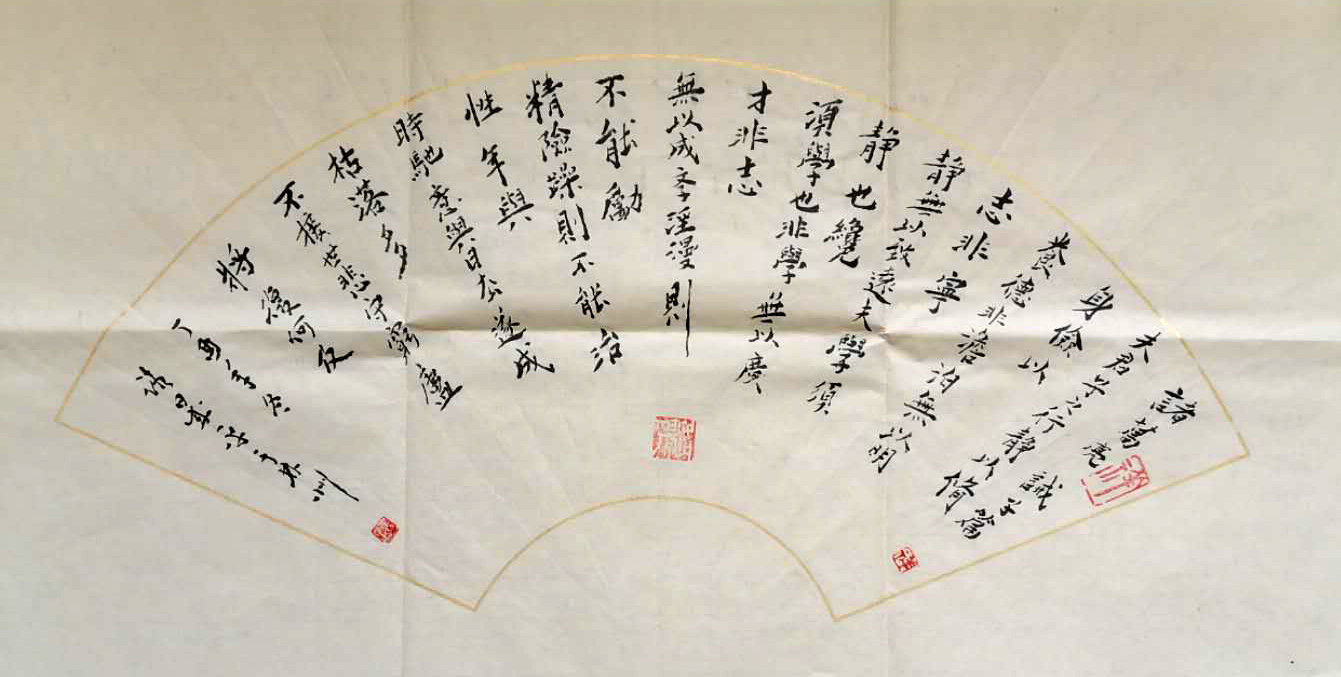 諸葛亮誡子篇
夫君子之行靜以脩
身儉以
養德非澹泊無以明
志非寧
靜無以致遠夫學須
靜也纔
須學也非學無以廣
才非志
無以成斈淫漫則
不能勵
精險躁則不能治
性年與
時馳意與日去遂成
枯落多
不接世悲守窮廬
將復何及
丁酉年冬